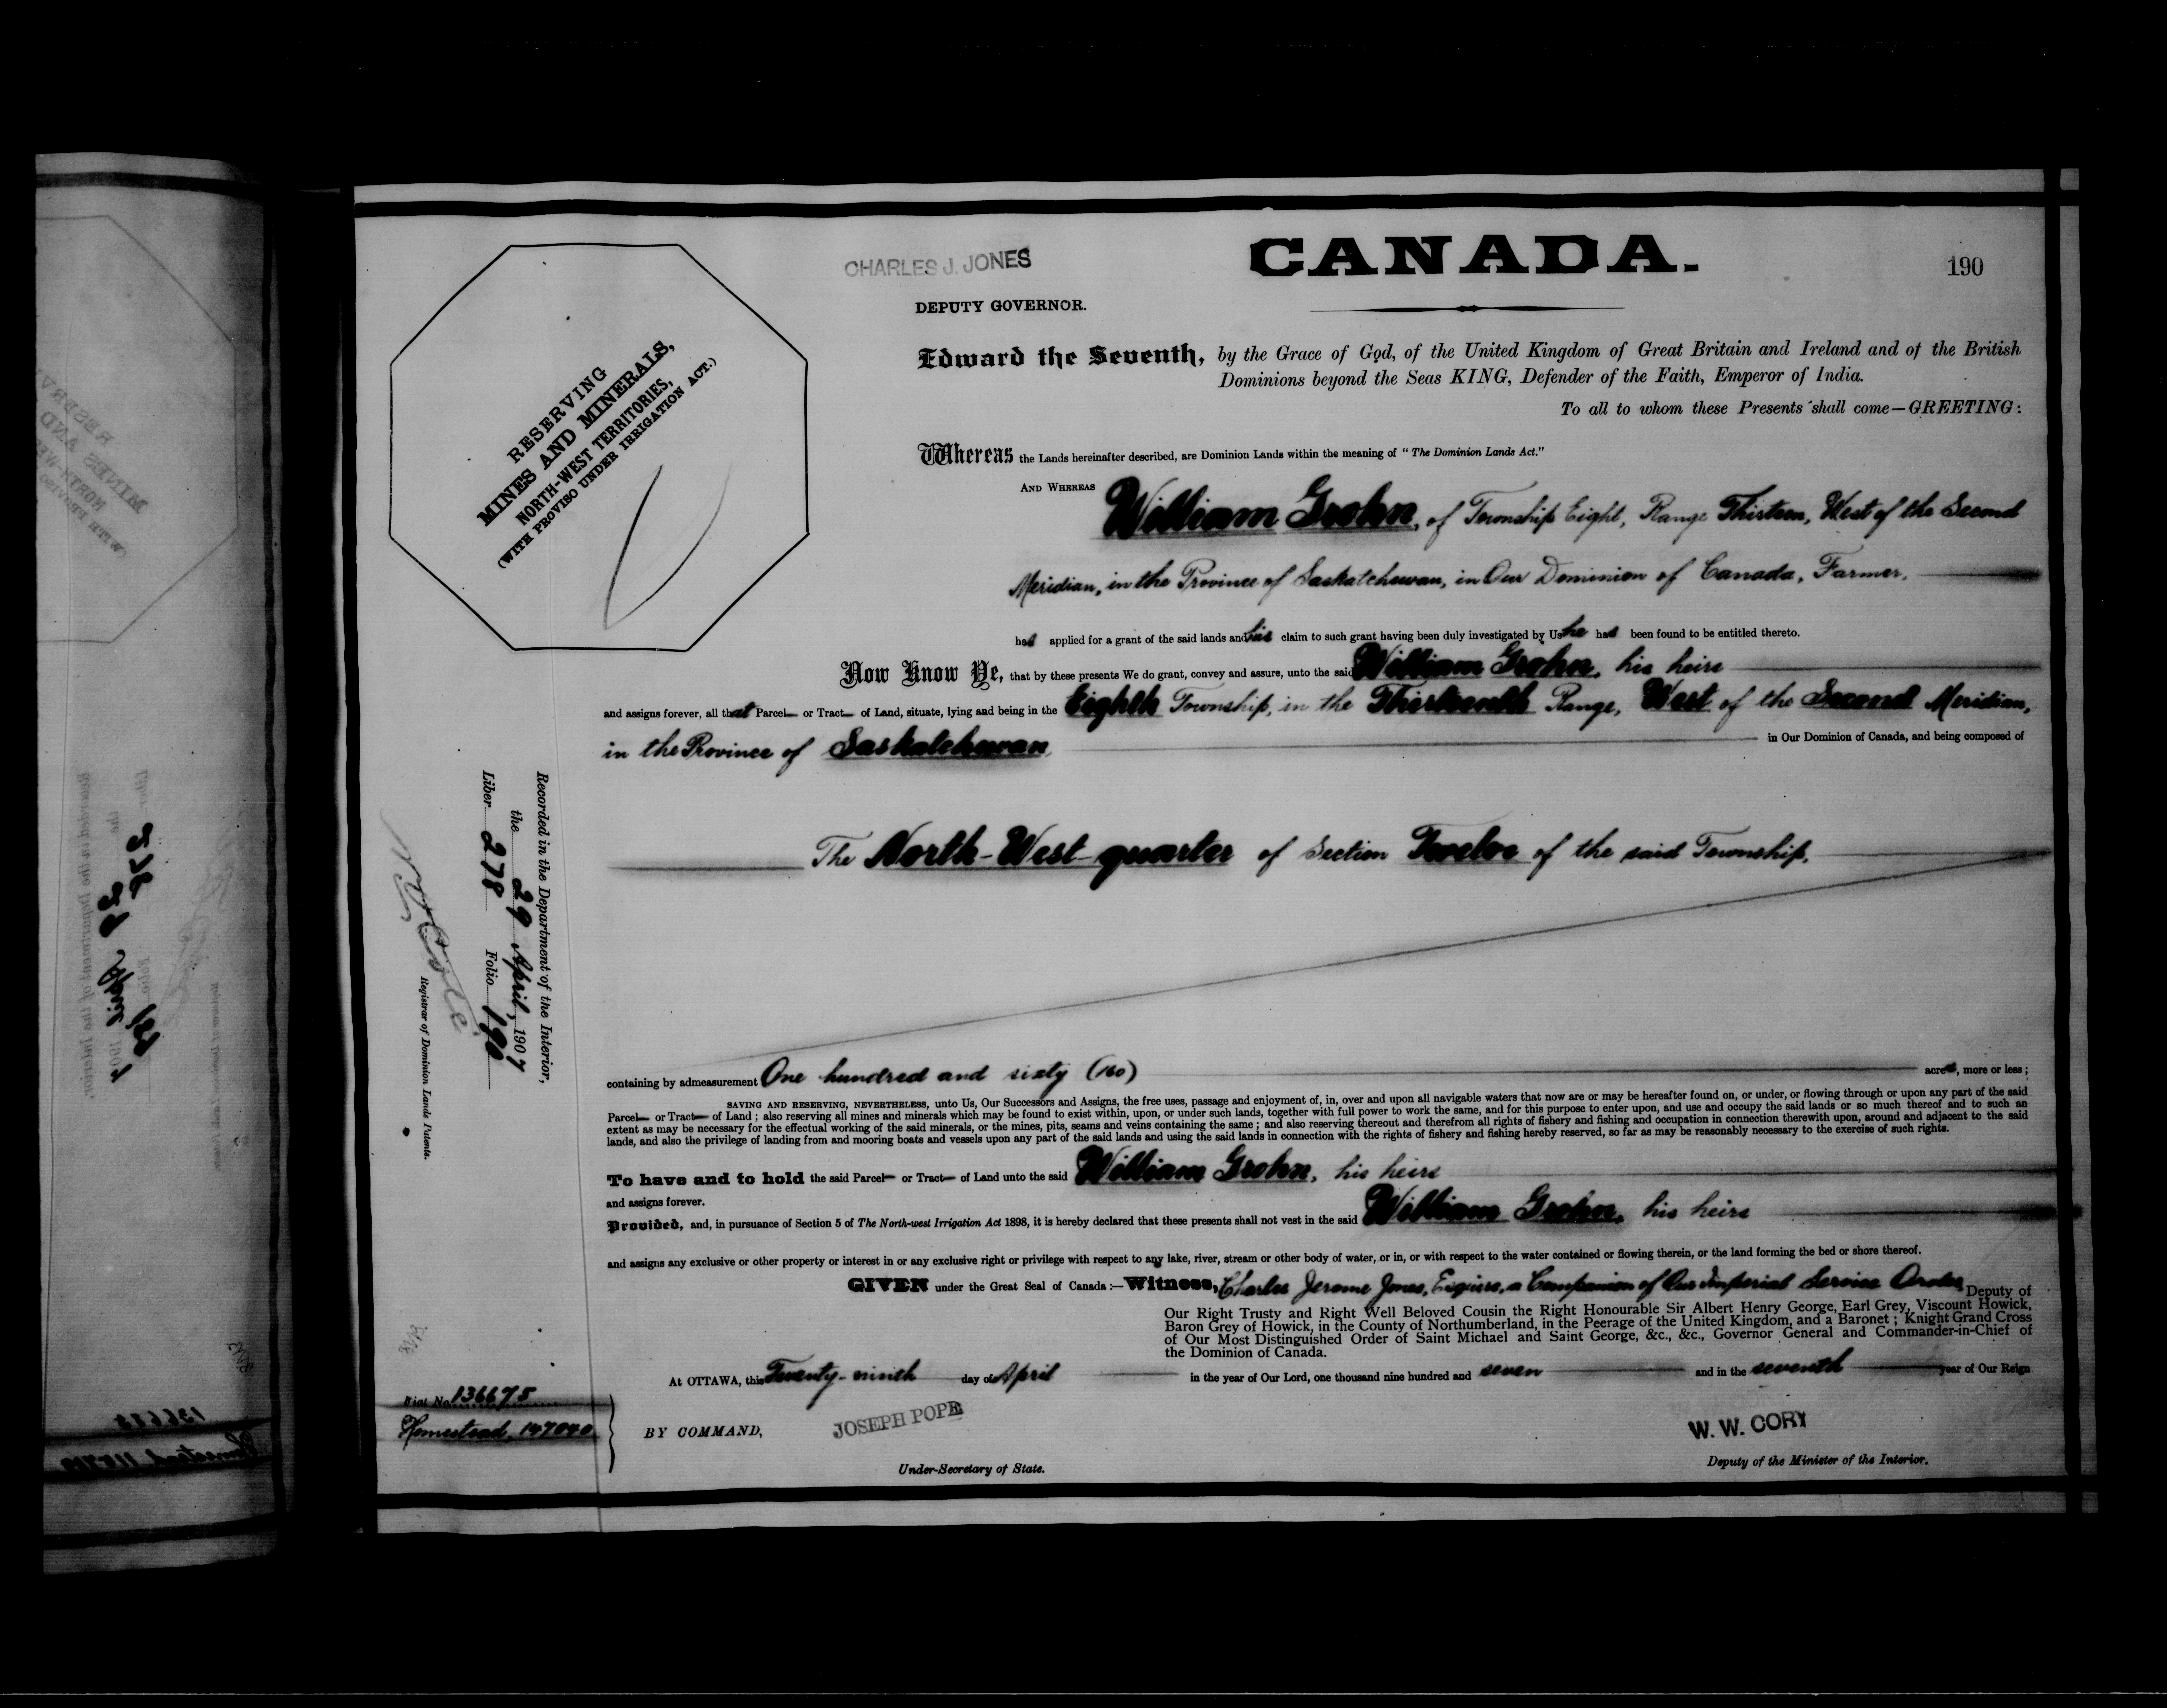 CANADA.
190
CHARLES J. JONES
DEPUTY GOVERNOR.
RESERVING
MINES AND MINERALS,
NORTH-WEST TERRITORIES,
(WITH PROVISO UNDER IRRIGATION ACT.)
Edward the Seventh, by the Grace of God, of the United Kingdom of Great Britain and Ireland and of the British
Dominions beyond the Seas KING, Defender of the Faith, Emperor of India.
To all to whom these Presents shall come—GREETING:
Whereas the Lands hereinafter described, are Dominion Lands within the meaning of "The Dominion Lands Act."
AND WHEREAS William Grohn, of Township Eight, Range Thirteen, West of the Second
Meridian, in the Province of Saskatchewan, in Our Dominion of Canada, Farmer,
had applied for a grant of the said lands and his claim to such grant having been duly investigated by Us he had been found to be entitled thereto.
Now Know Ye, that by these presents We do grant, convey and assure, unto the said William Grohn, his heirs
and assigns forever, all that Parcel or Tract of Land, situate, lying and being in the Eighth Township, in the Thirteenth Range, West of the Second Meridian,
in the Province of Saskatchewan, in Our Dominion of Canada, and being composed of
The North-West quarter of Section Twelve of the said Township,
Recorded in the Department of the Interior,
the 29 April, 1907
Liber 278 Folio 190
Registrar of Dominion Lands Patents.
containing by admeasurement One hundred and sixty (160) acres, more or less;
SAVING AND RESERVING, NEVERTHELESS, unto Us, Our Successors and Assigns, the free uses, passage and enjoyment of, in, over and upon all navigable waters that now are or may be hereafter found on, or under, or flowing through or upon any part of the said
Parcel or Tract of Land; also reserving all mines and minerals which may be found to exist within, upon, or under such lands, together with full power to work the same, and for this purpose to enter upon, and use and occupy the said lands or so much thereof and to such an
extent as may be necessary for the effectual working of the said minerals, or the mines, pits, seams and veins containing the same; and also reserving thereout and therefrom all rights of fishery and fishing and occupation in connection therewith upon, around and adjacent to the said
lands, and also the privilege of landing from and mooring boats and vessels upon any part of the said lands and using the said lands in connection with the rights of fishery and fishing hereby reserved, so far as may be reasonably necessary to the exercise of such rights.
To have and to hold the said Parcel or Tract of Land unto the said William Grohn, his heirs
and assigns forever.
Provided, and, in pursuance of Section 5 of The North-west Irrigation Act 1898, it is hereby declared that these presents shall not vest in the said William Grohn, his heirs
and assigns any exclusive or other property or interest in or any exclusive right or privilege with respect to any lake, river, stream or other body of water, or in, or with respect to the water contained or flowing therein, or the land forming the bed or shore thereof.
GIVEN under the Great Seal of Canada:—Witness, Charles Jerome Jones, Esquire, a Companion of Our Imperial Service Order, Deputy of
Our Right Trusty and Right Well Beloved Cousin the Right Honourable Sir Albert Henry George, Earl Grey, Viscount Howick,
Baron Grey of Howick, in the County of Northumberland, in the Peerage of the United Kingdom, and a Baronet; Knight Grand Cross
of Our Most Distinguished Order of Saint Michael and Saint George, &c., &c., Governor General and Commander-in-Chief of
the Dominion of Canada.
At OTTAWA, this Twenty-ninth day of April in the year of Our Lord, one thousand nine hundred and seven and in the seventh year of Our Reign
Fiat No. 136675
Homestead, 147040
BY COMMAND,
JOSEPH POPE
Under-Secretary of State.
W. W. CORY
Deputy of the Minister of the Interior.